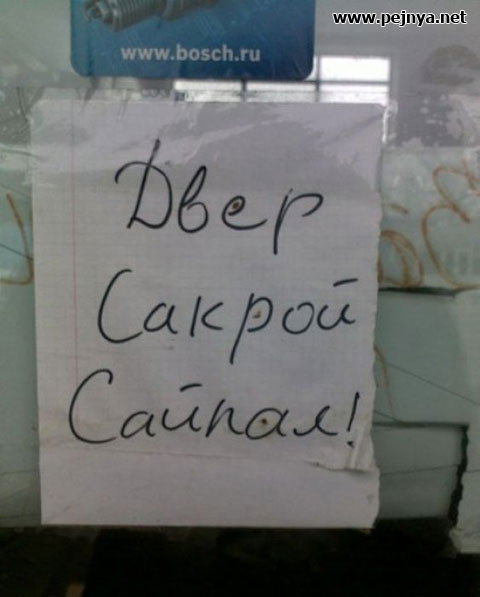 www.pejnya.net
www.bosch.ru
Двер
Сакрой
Сайпал!